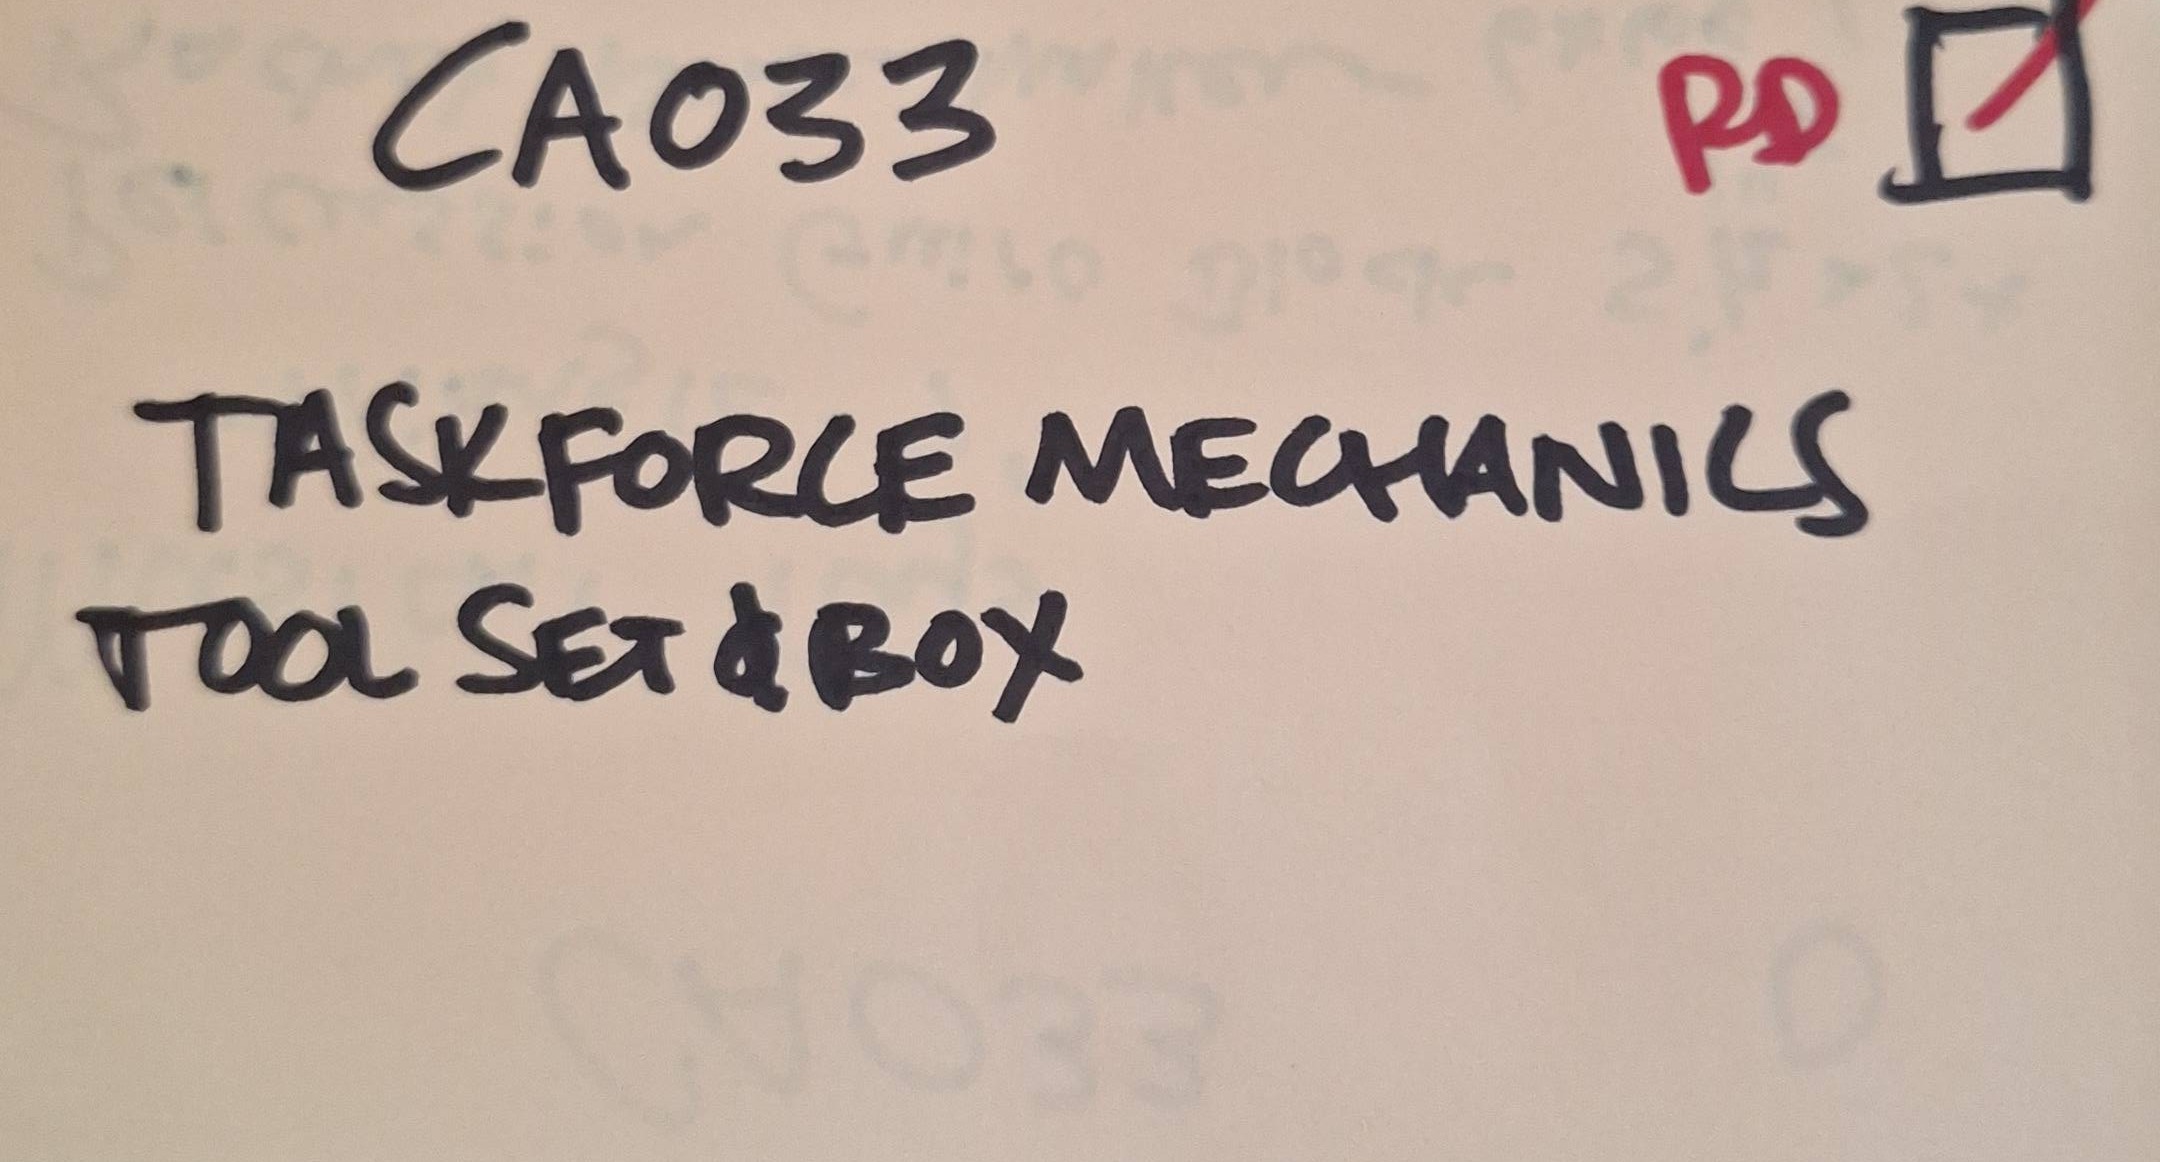 CA033 RD
TASKFORCE MECHANICS
TOOL SET & BOX
CA033